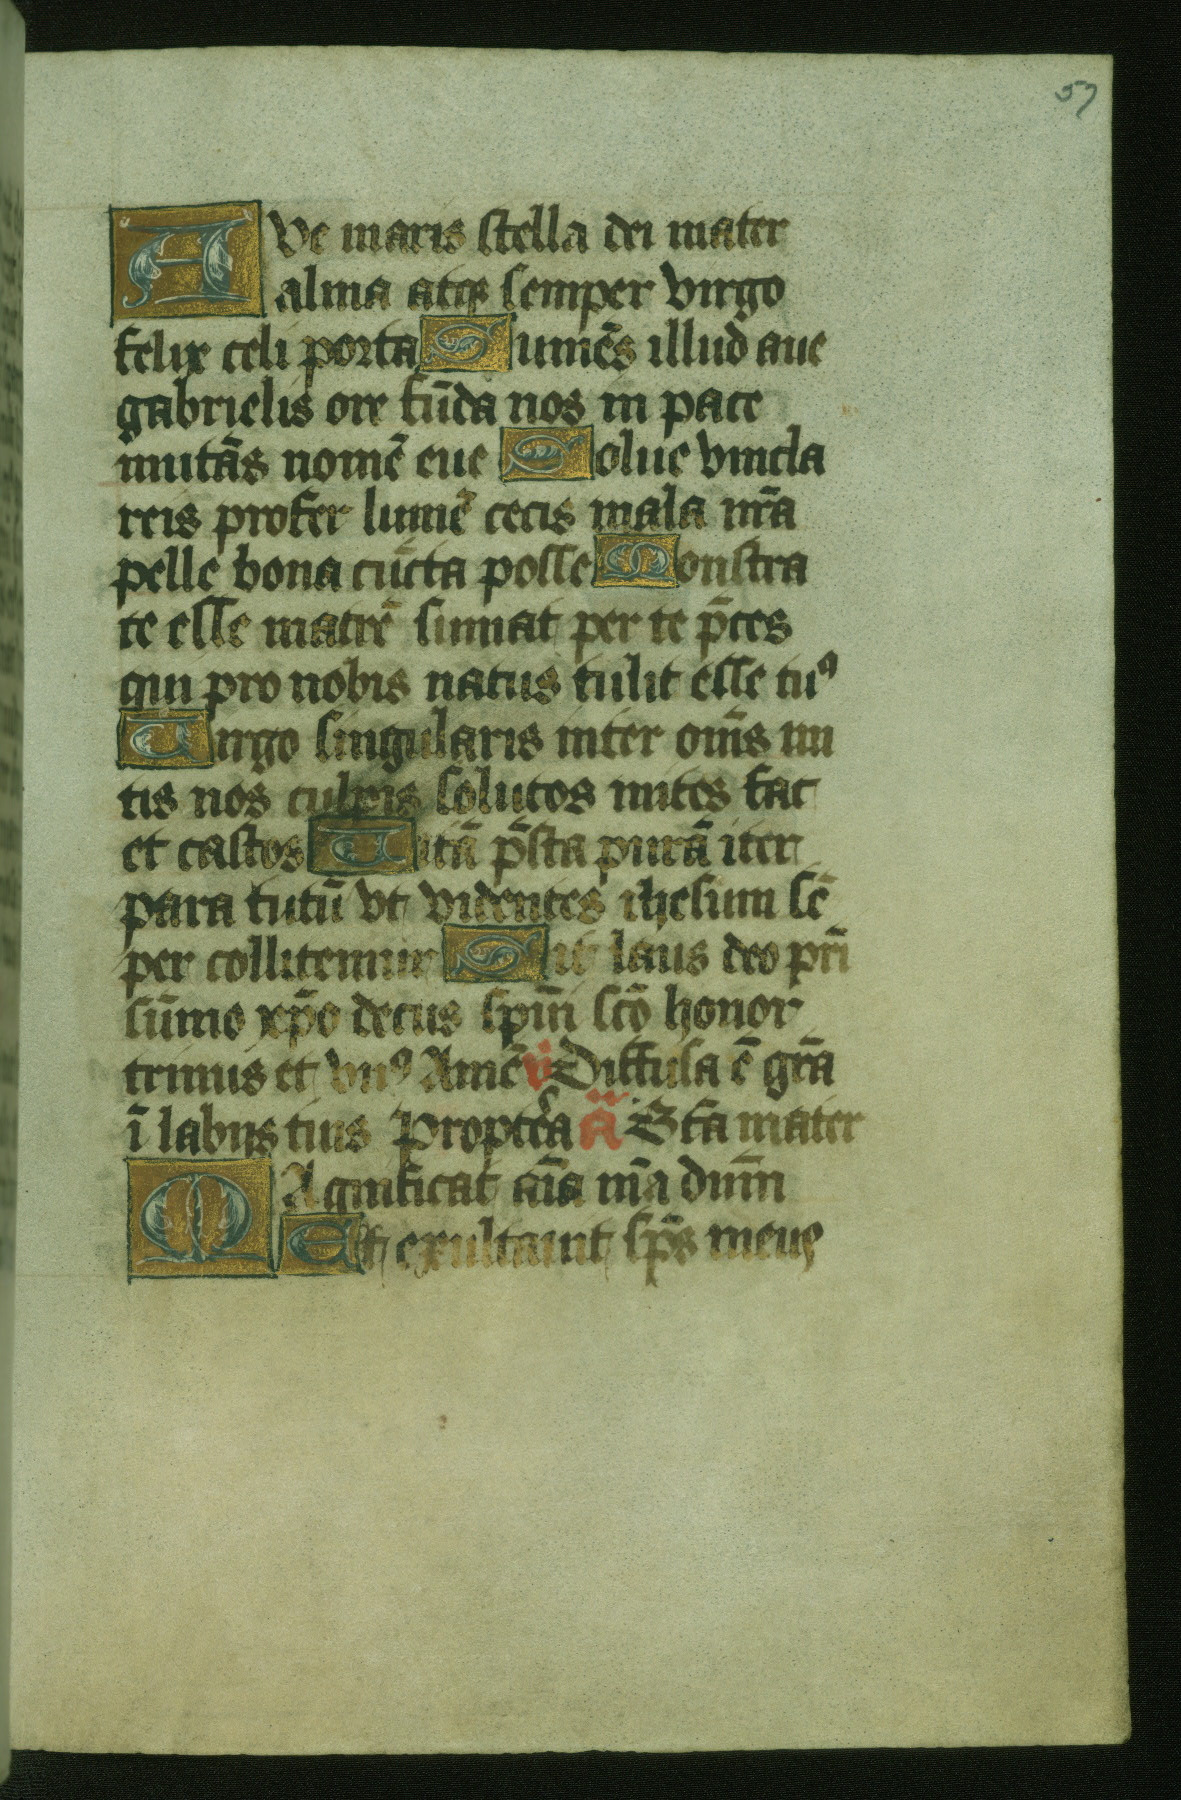 57
Ave maris stella dei mater
alma atqꝫ semper virgo
felix celi porta Sumēs illud aue
gabrielis ore fūda nos in pace
mutās nomē eue Solue vincla
reis profer lumē cecis mala nr̄a
pelle bona cūcta posse Monstra
te esse matrē sumat per te p̄ces
qui pro nobis natus tulit esse tuꝰ
Uirgo singularis inter om̄s mi
tis nos culpis solutos mites fac
et castos Uitā p̄sta purā iter
para tutū vt videntes ihesum sē
per colletemur Sit laus deo pr̄i
sūmo xp̄o decus spīm sc̄o honor
trinus et vnꝰ Amē v Diffusa ē gr̄a
ī labiis tuis Propterea a̅ Bt̄a mater
Magnificat aīa m̄a dum̄
Et exultauit sp̄s meus